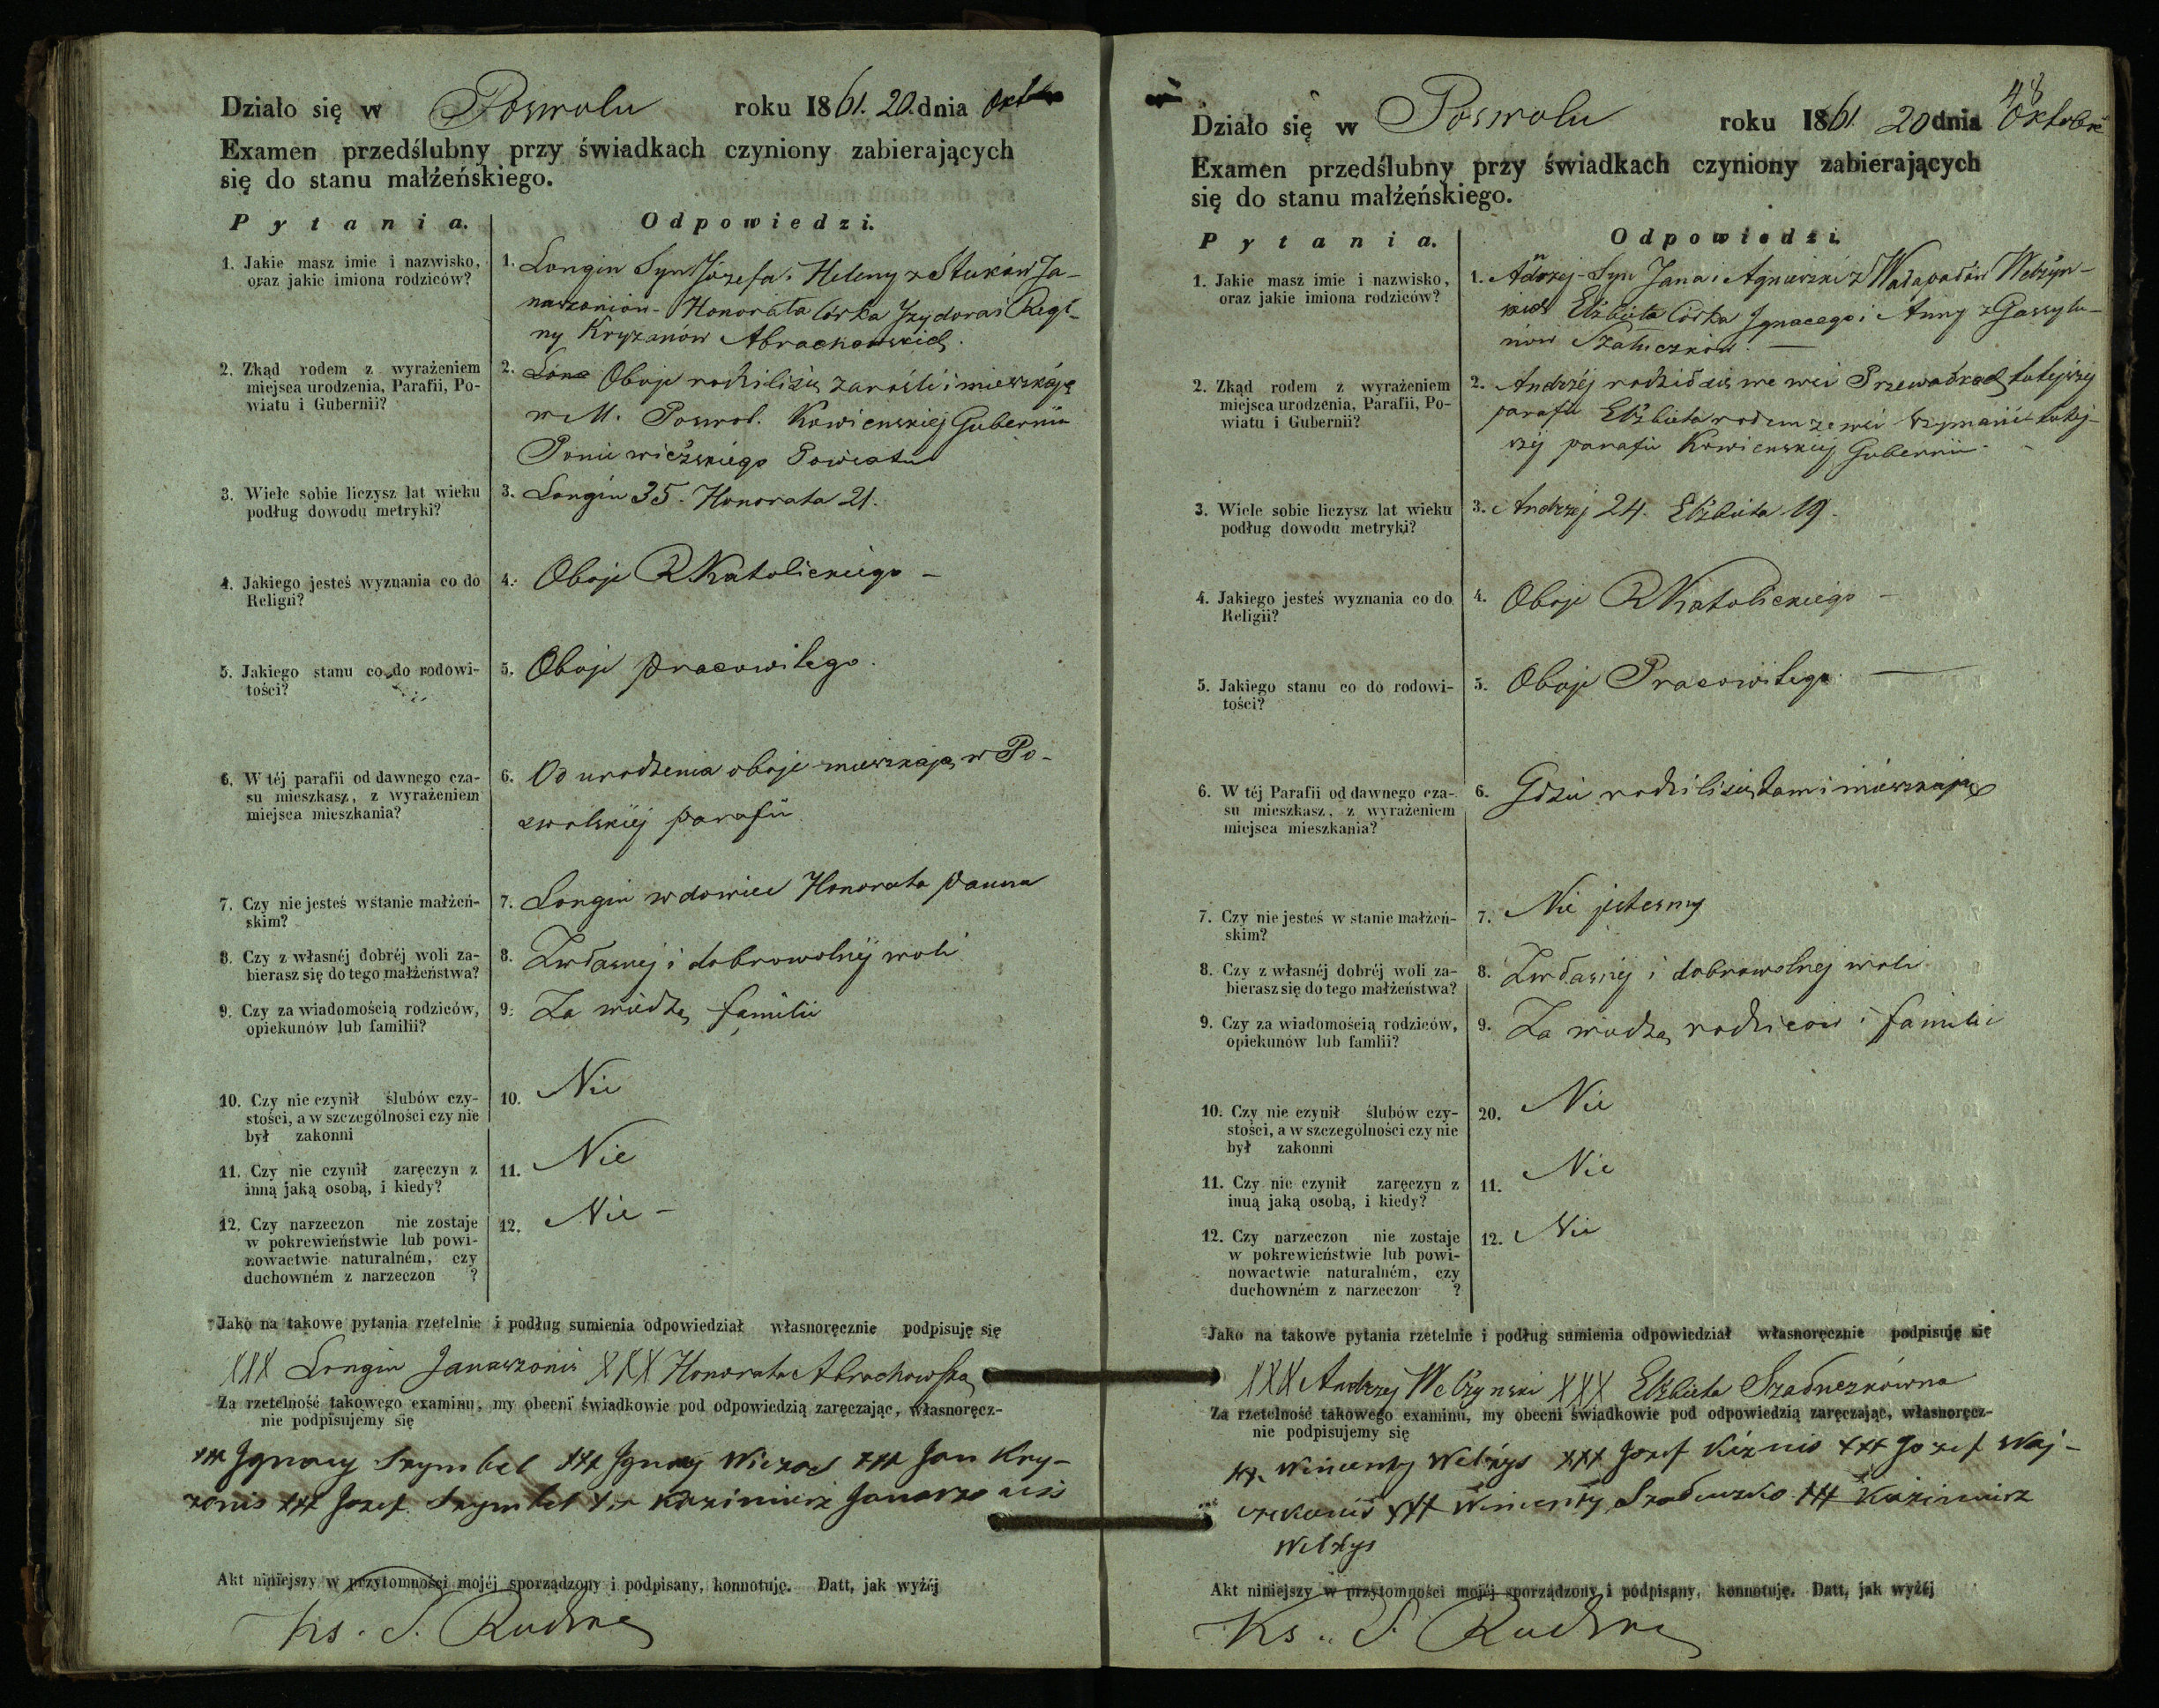 Działo się w Poswolu roku 1861. 20. dnia Okt
Examen przedślubny przy świadkach czyniony zabierających
się do stanu małżeńskiego.
Pytania. Odpowiedzi.
1. Jakie masz imie i nazwisko,
oraz jakie imiona rodziców?
1. Longin Syn Józefa i Heleny z Stuków Ja-
naszoniów - Honorata Córka Jzydora i Regi-
ny Kryzanów Abrachowskich.
2. Zkąd rodem z wyrażeniem
miejsca urodzenia, Parafii, Po-
wiatu i Gubernii?
2. Oboje rodzili się zarośli i mieszkają
w M. Poswol. Kowienskiej Gubernii
Poniewieżskiego Powiatu
3. Wiele sobie liczysz lat wieku
podług dowodu metryki?
3. Longin 35. Honorata 21.
4. Jakiego jesteś wyznania co do
Religii?
4. Oboje R Katolickiego -
5. Jakiego stanu co do rodowi-
tości?
5. Oboje pracowitego.
6. W téj parafii od dawnego cza-
su mieszkasz, z wyrażeniem
miejsca mieszkania?
6. Od urodzenia oboje mieszkają w Po-
zwolskiéj parafii
7. Czy nie jesteś wstanie małżeń-
skim?
7. Longin wdowiec Honorata panna
8. Czy z własnéj dobréj woli za-
bierasz się do tego małżeństwa?
8. Zwłasnej i dobrowolnéj woli
9. Czy za wiadomością rodziców,
opiekunów lub familii?
9. Za wiedzą familii
10. Czy nie czynił ślubów czy-
stości, a w szczególności czy nie
był zakonni
10. Nie
11. Czy nie czynił zaręczyn z
inną jaką osobą, i kiedy?
11. Nie
12. Czy narzeczon nie zostaje
w pokrewieństwie lub powi-
nowactwie naturalném, czy
duchowném z narzeczon ?
12. Nie -
Jako na takowe pytania rzetelnie i podług sumienia odpowiedział własnoręcznie podpisuję się
XXX Longin Janaszonis XXX Honorata Abrachowska
Za rzetelność takowego examinu, my obecni świadkowie pod odpowiedzią zaręczając, własnoręcz-
nie podpisujemy się
xxx Jgnacy Szymbel xxx Jgnacy xxx Jan Kry-
zonis xxx Jozef Szymbel xxx Kazimierz Janaszonis
Akt niniejszy w przytomności mojéj sporządzony i podpisany, konnotuję. Datt, jak wyżéj
Ks. S. Rudn
48
Działo się w Poswolu roku 1861. 20 dnia Oktobr
Examen przedślubny przy świadkach czyniony zabierających
się do stanu małżeńskiego.
Pytania. Odpowiedzi.
1. Jakie masz imie i nazwisko,
oraz jakie imiona rodziców?
1. Andrzej - Syn Jana i Agnieszki z Wełżyn-
Elżbieta Córka Jgnacego i Anny z Gassylu-
nów
2. Zkąd rodem z wyrażeniem
miejsca urodzenia, Parafii, Po-
wiatu i Gubernii?
2. Andrzéj rodził się we wsi tutejszéj
parafii Elżbieta rodem ze wsi tutej-
széj parafii Kowienskiéj Gubernii -
3. Wiele sobie liczysz lat wieku
podług dowodu metryki?
3. Andrzej 24. Elżbieta 19.
4. Jakiego jesteś wyznania co do
Religii?
4. Oboje R Katolickiego -
5. Jakiego stanu co do rodowi-
tości?
5. Oboje Pracowitego.
6. W téj Parafii od dawnego cza-
su mieszkasz, z wyrażeniem
miejsca mieszkania?
6. Gdzie rodzili się tam i mieszkają
7. Czy nie jesteś w stanie małżeń-
skim?
7. Nie jestesmy
8. Czy z własnéj dobréj woli za-
bierasz się do tego małżeństwa?
8. Zwłasnéj i dobrowolnej woli
9. Czy za wiadomością rodziców,
opiekunów lub famlii?
9. Za wiedzą rodziców i familii
10. Czy nie czynił ślubów czy-
stości, a w szczególności czy nie
był zakonni
20. Nie
11. Czy nie czynił zaręczyn z
inuą jaką osobą, i kiedy?
11. Nie
12. Czy narzeczon nie zostaje
w pokrewieństwie lub powi-
nowactwie naturalném, czy
duchowném z narzeczon ?
12. Nie
Jako na takowe pytania rzetelnie i podług sumienia odpowiedział własnoręcznie podpisuję się
XXX Andrzej Wełżynski XXX Elżbieta Szałuczkówna
Za rzetelność takowego examinu, my obecni świadkowie pod odpowiedzią zaręczając, własnoręcz-
nie podpisujemy się
xxx Wincenty Wełżys xxx Jozef Kiżnis xxx Jozef Waj-
xxx Wincenty xxx Kazimierz
Wełżys
Akt niniejszy w przytomności mojéj sporządzony i podpisany, konnotuję. Datt, jak wyżéj
Ks. S. Rudn